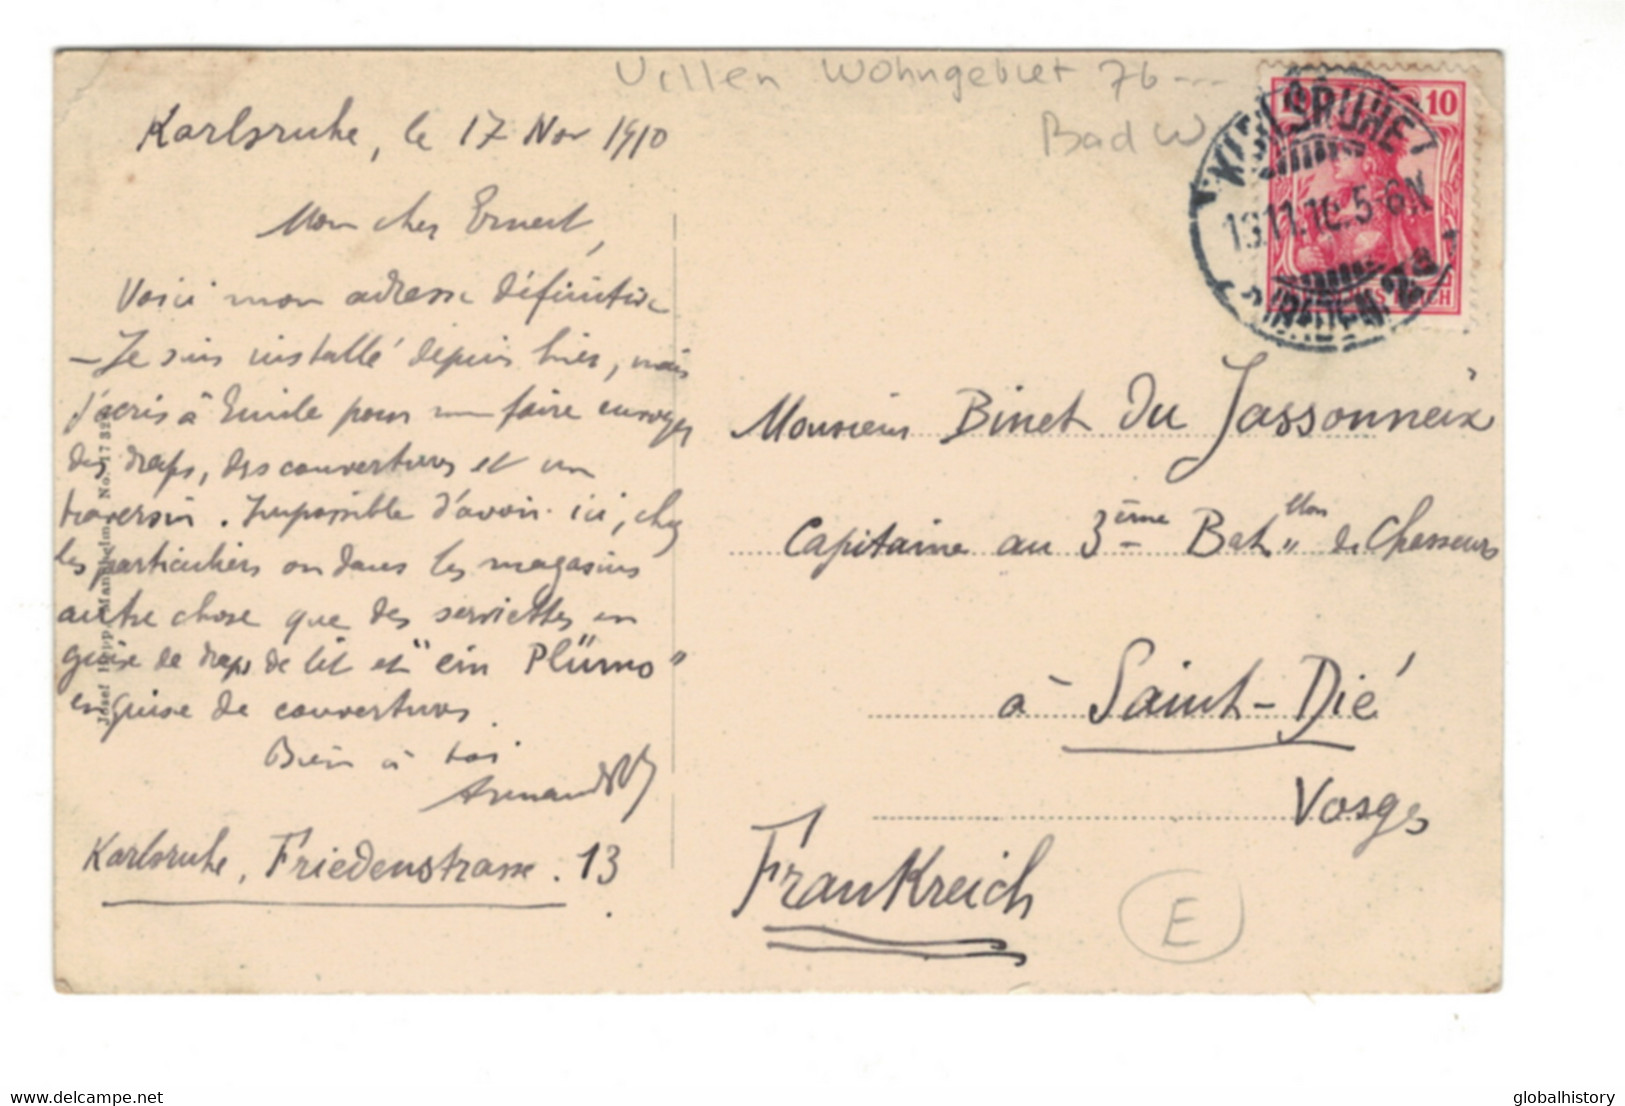 Villen Wohngebiet 76 ---
Bad W
Karlsruhe, le 17 Nov 1910
Mon cher Ernest,
Voici mon adresse définitive
- Je suis installé depuis hier, mais
j'écris à Emile pour me faire envoyer
des draps, des couvertures et un
traversin. Impossible d'avoir ici, chez
les particuliers ou dans les magasins
autre chose que des serviettes en
guise de draps de lit et "ein Plümo"
en guise de couvertures.
Bien à toi
Armand
Karlsruhe, Friedenstrasse. 13
Josef Mannheim No. 1732
KARLSRUHE
11.10.5-6N
(BADEN)
10
REICH
Monsieur Binet du Jassonneix
Capitaine au 3ème Bat"llon de Chasseurs
à Saint-Dié
Vosges
Frankreich
E
www.delcampe.net
globalhistory